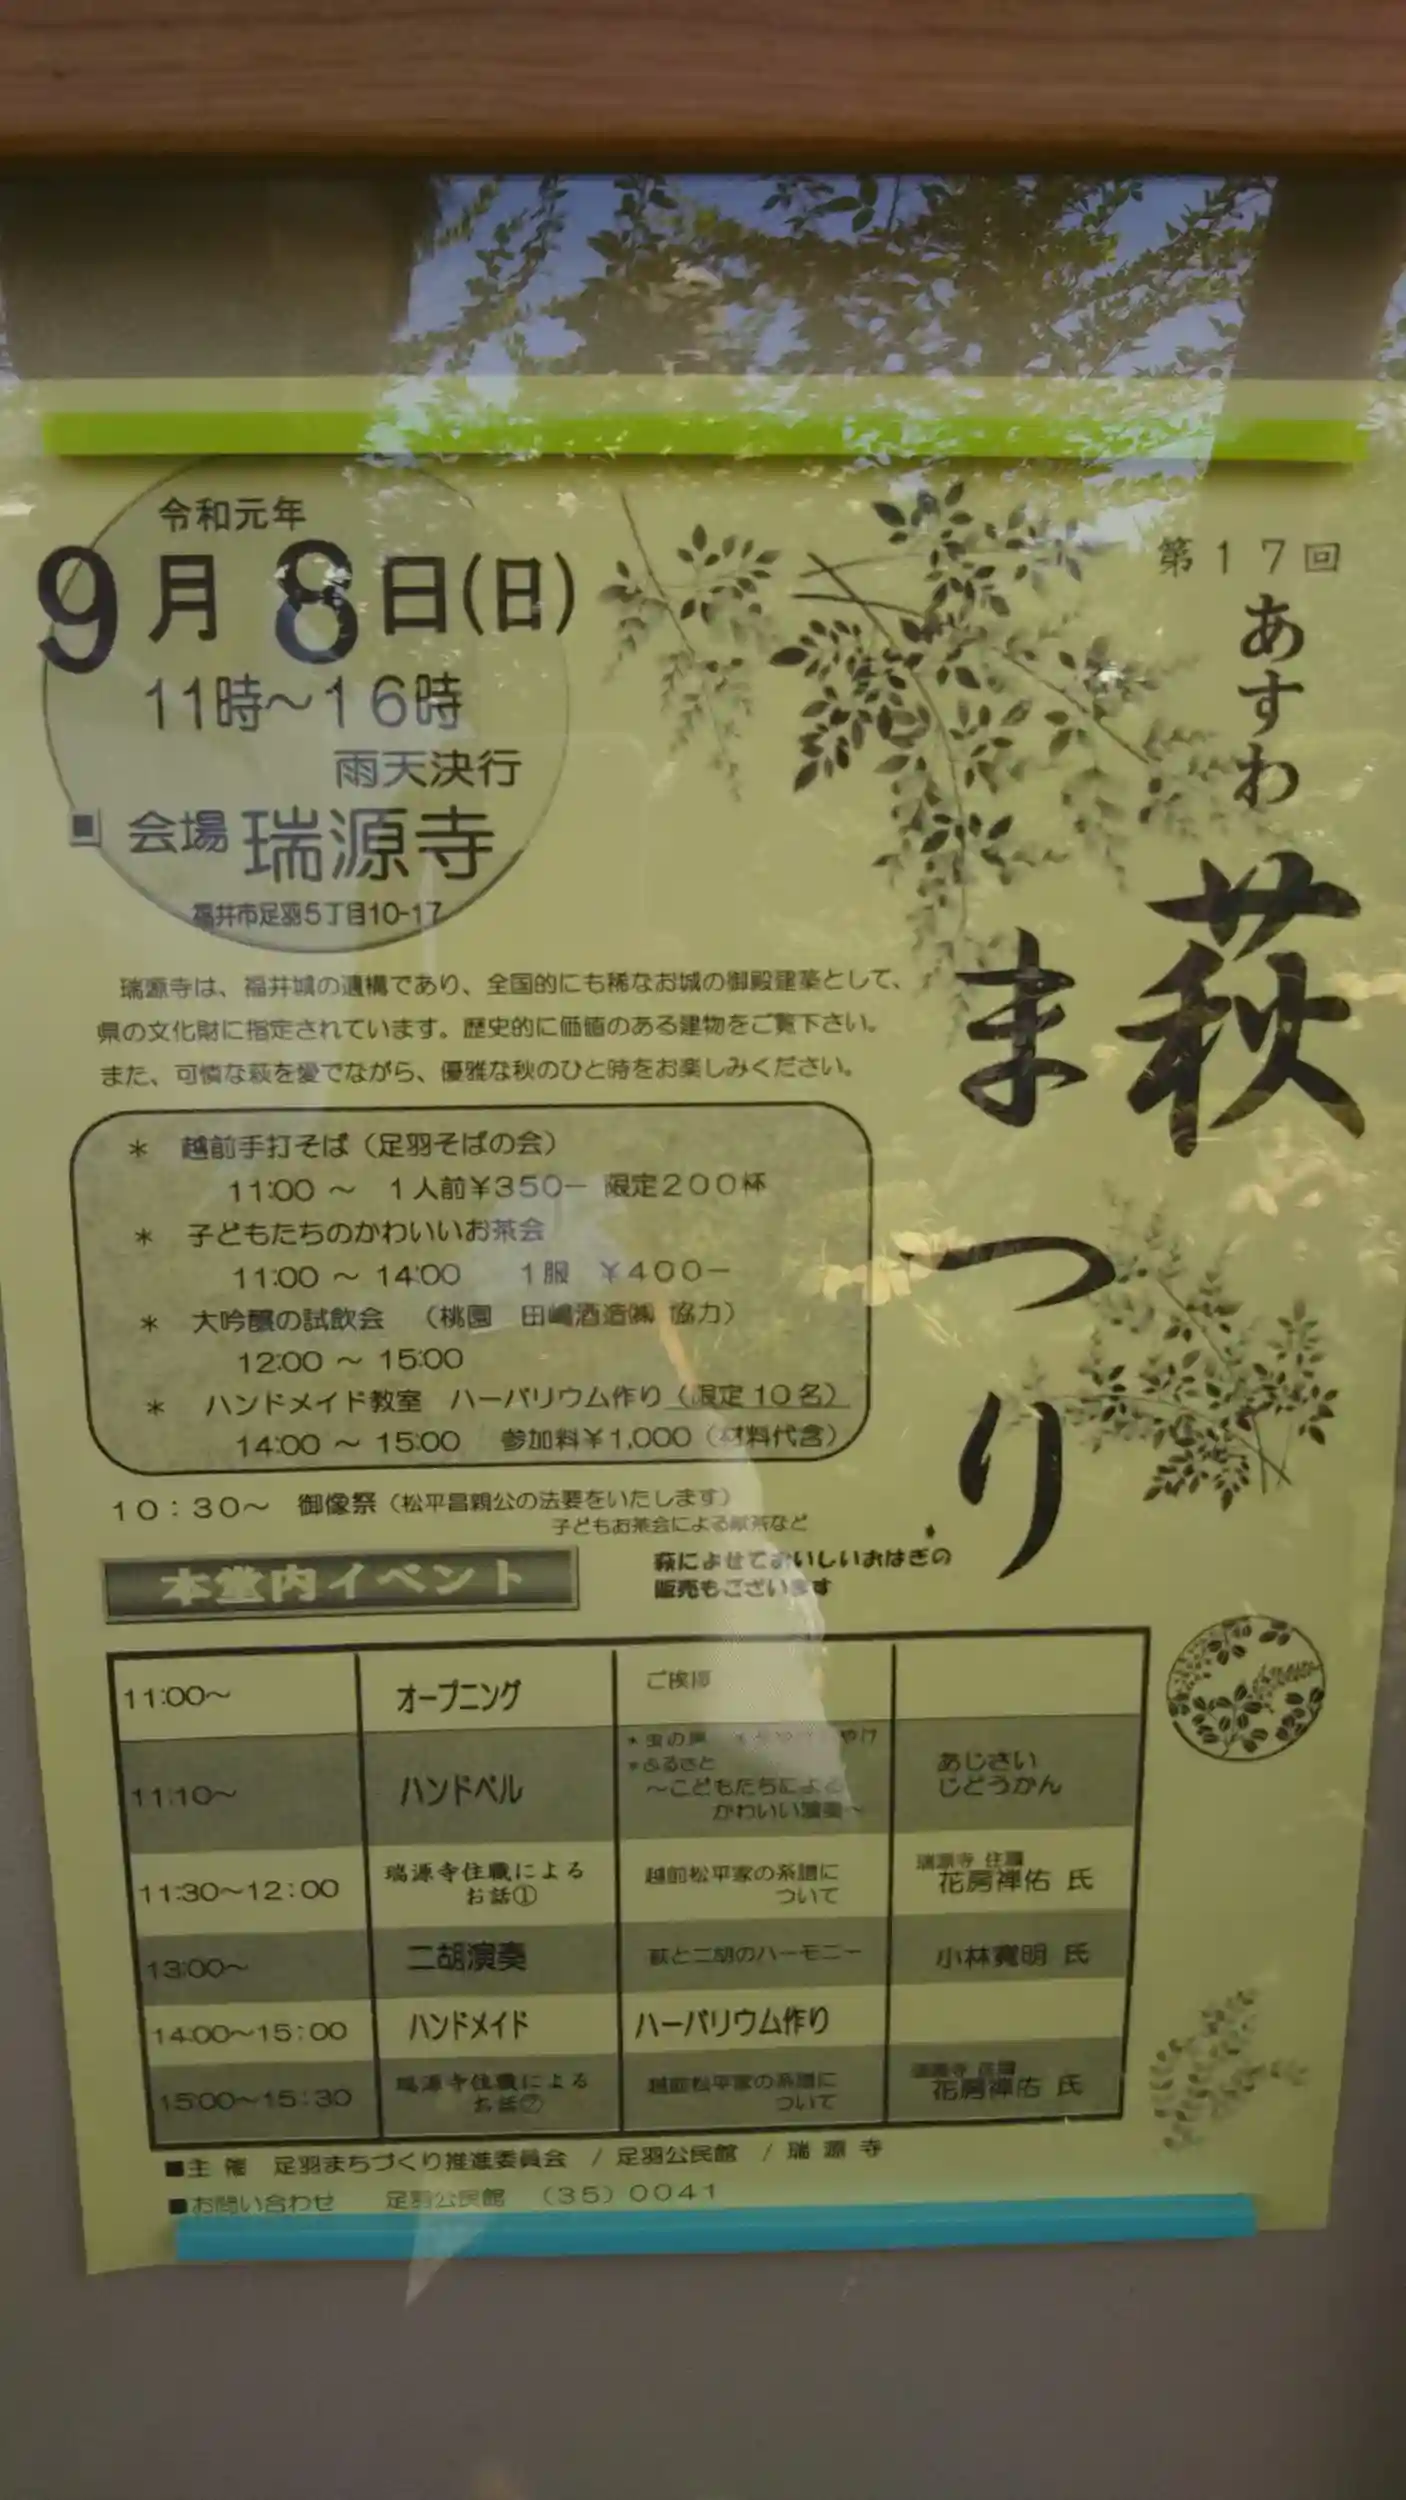 第17回
あすわ
萩
まつり
令和元年
9月8日(日)
11時～16時
雨天決行
会場 瑞源寺
福井市足羽5丁目10-17
瑞源寺は、福井城の遺構であり、全国的にも稀なお城の御殿建築として、
県の文化財に指定されています。歴史的に価値のある建物をご覧下さい。
また、可憐な萩を愛でながら、優雅な秋のひと時をお楽しみください。
＊ 越前手打そば（足羽そばの会）
11:00 ～ 1人前￥350－ 限定200杯
＊ 子どもたちのかわいいお茶会
11:00 ～ 14:00 1服 ￥400－
＊ 大吟醸の試飲会 （桃園 田嶋酒造㈱ 協力）
12:00 ～ 15:00
＊ ハンドメイド教室 ハーバリウム作り（限定10名）
14:00 ～ 15:00 参加料￥1,000（材料代含）
10：30～ 御像祭（松平昌親公の法要をいたします）
子どもお茶会による献茶など
本堂内イベント
萩によせておいしいおはぎの
販売もございます
11:00～ オープニング ご挨拶
11:10～ ハンドベル
＊虫の声
＊ふるさと
～こどもたちによる
かわいい演奏～
あじさい
じどうかん
11:30～12:00
瑞源寺住職による
お話①
越前松平家の系譜に
ついて
瑞源寺 住職
花房禅佑 氏
13:00～ 二胡演奏 萩と二胡のハーモニー 小林寛明 氏
14:00～15:00 ハンドメイド ハーバリウム作り
15:00～15:30
瑞源寺住職による
お話②
越前松平家の系譜に
ついて
瑞源寺 住職
花房禅佑 氏
■主 催 足羽まちづくり推進委員会 / 足羽公民館 / 瑞 源 寺
■お問い合わせ 足羽公民館 （35）0041